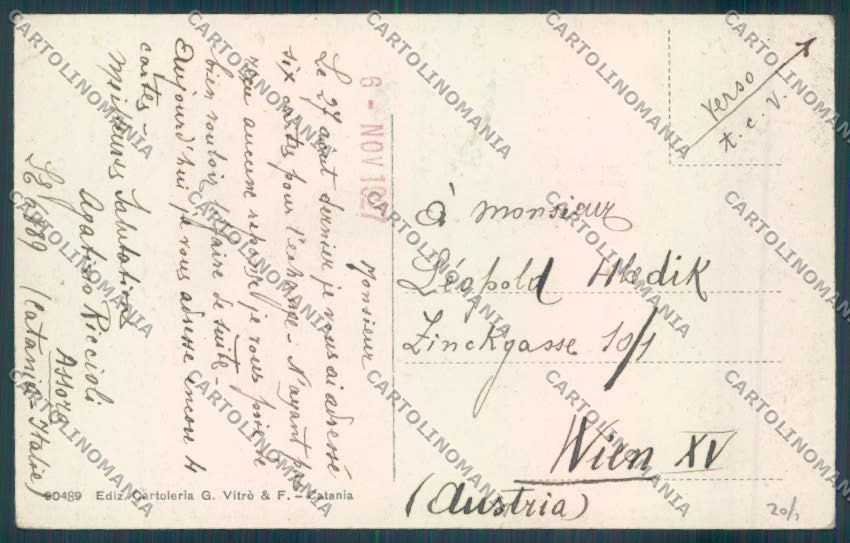 Monsieur
Le 27 août dernier je vous ai adressé
six cartes pour l'échange - N'ayant pas
reçu aucune reponse je vous prie de
bien vouloir le faire de suite -
Aujourd'hui je vous adresse encore 4
cartes -
Meilleures Salutations
Agatino Riccioli
Assoro
(Catania - Italie)
6 - NOV 1927
verso
t. c. v.
à Monsieur
Léopold Hledik
Zinckgasse 10/1
Wien XV
(Austria)
20/1
90489 Ediz. Cartoleria G. Vitrò & F. - Catania
CARTOLINOMANIA